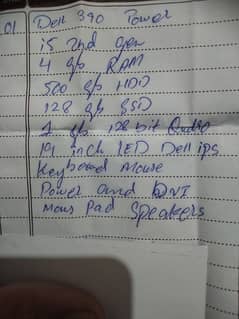 01 Dell 390 Tower
i5 2nd gen
4 gb RAM
500 gb HDD
128 gb SSD
1 gb 128 bit
19 inch LED Dell ips
Keyboard Mouse
Power and
Mous Pad Speakeers